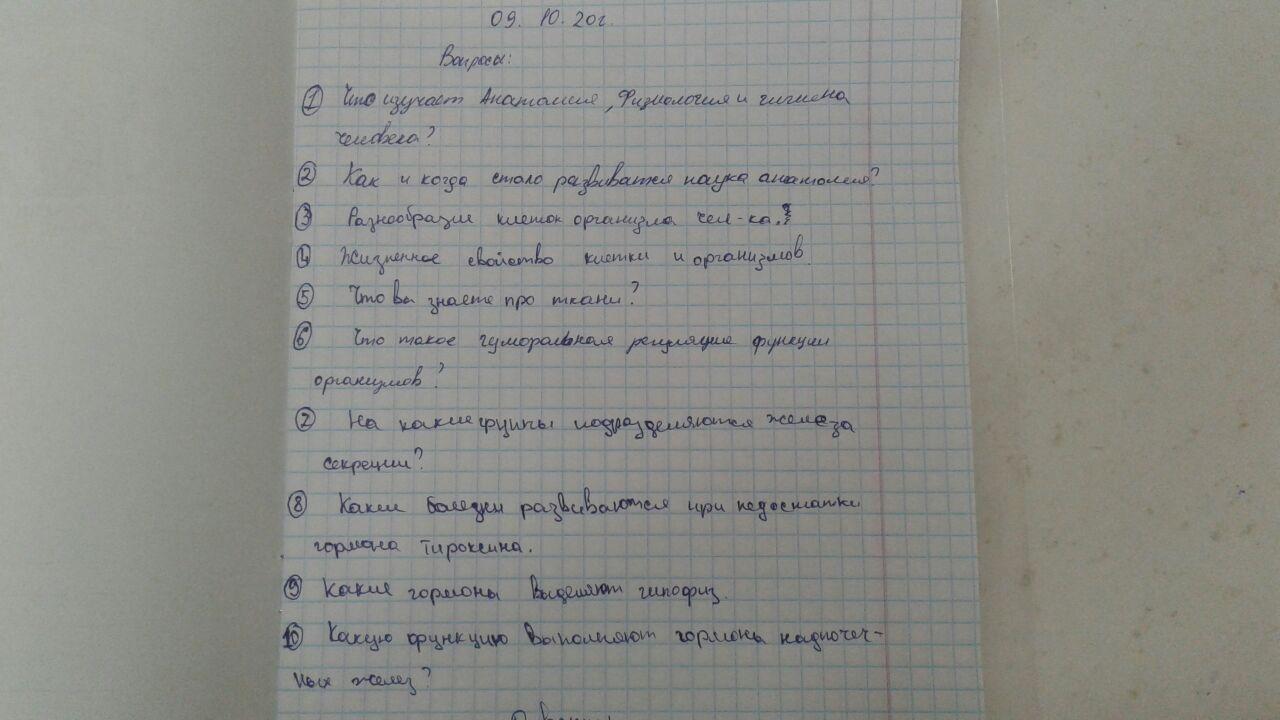 09. 10. 20г.
Вопросы:
1 Что изучает Анатомия, Физиология и гигиена
человека?
2 Как и когда стало развиватся наука анатомия?
3 Разнообразие клеток организма чел-ка.?
4 Жизненное свойство клетки и организмов.
5 Что вы знаете про ткани?
6 Что такое гуморальная регуляция функции
организмов?
7 На какие группы подразделяются железа
секреции?
8 Какие болезни развиваются при недостатки
гормона тироксина.
9 Какие гормоны выделяют гипофиз.
10 Какую функцию выполняют гормоны надпочеч-
ных желез?